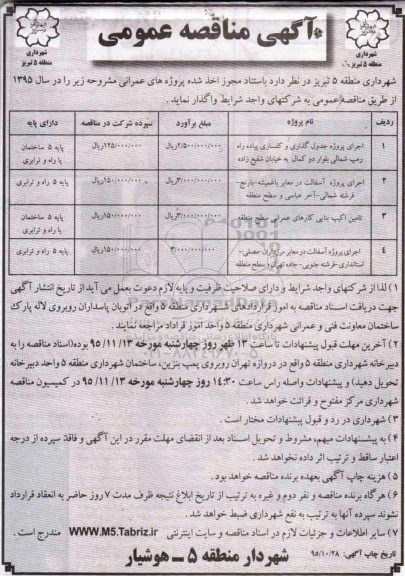 آگهی مناقصه عمومی
شهرداری
منطقه ۵ تبریز
شهرداری
منطقه ۵ تبریز
شهرداری منطقه ۵ تبریز در نظر دارد باستناد مجوز اخذ شده پروژه های عمرانی مشروحه زیر را در سال ۱۳۹۵
از طریق مناقصه عمومی به شرکتهای واجد شرایط واگذار نماید.
ردیف نام پروژه مبلغ برآورد سپرده شرکت در مناقصه دارای پایه
۱ اجرای پروژه جدول گذاری و کفسازی پیاده راه ۲/۵۰۰/۰۰۰/۰۰۰ریال ۱۲۵/۰۰۰/۰۰۰ریال پایه ۵ ساختمان
رمپ شمالی بلوار دو کمال به خیابان شفیع زاده یا راه و ترابری
۲ اجرای پروژه آسفالت در معابر باغمیشه-بارنج- ۳/۰۰۰/۰۰۰/۰۰۰ریال ۱۵۰/۰۰۰/۰۰۰ریال پایه ۵ راه و ترابری
فرشته شمالی-آخر عباسی و سطح منطقه
۳ تامین اکیپ بنایی کارهای عمرانی سطح منطقه ۳/۰۰۰/۰۰۰/۰۰۰ریال ۱۵۰/۰۰۰/۰۰۰ریال پایه ۵ ساختمان
یا راه و ترابری
۴ اجرای پروژه آسفالت در معابر مرزداران-مصلی- ۳/۰۰۰/۰۰۰/۰۰۰ ۱۵۰/۰۰۰/۰۰۰ریال پایه ۵ راه و ترابری
استانداری-فرشته جنوبی-جاده تهران و سطح منطقه
۱) لذا از شرکتهای واجد شرایط و دارای صلاحیت ظرفیت و پایه لازم دعوت بعمل می آید از تاریخ انتشار آگهی
جهت دریافت اسناد مناقصه به امور قراردادهای شهرداری منطقه ۵ واقع در اتوبان پاسداران روبروی لاله پارک
ساختمان معاونت فنی و عمرانی شهرداری منطقه ۵ واحد امور قراداد مراجعه نمایند.
۲) آخرین مهلت قبول پیشنهادات تا ساعت ۱۳ ظهر روز چهارشنبه مورخه ۹۵/۱۱/۱۳ بوده(اسناد مناقصه را به
دبیرخانه شهرداری منطقه ۵ واقع در دروازه تهران روبروی پمپ بنزین، ساختمان شهرداری منطقه ۵ واحد دبیرخانه
تحویل دهید) و پیشنهادات واصله راس ساعت ۱۴:۳۰ روز چهارشنبه مورخه ۹۵/۱۱/۱۳ در کمیسیون مناقصه
شهرداری مرکز مفتوح و قرائت خواهد شد.
۳) شهرداری در رد و قبول پیشنهادات مختار است.
۴) به پیشنهادات مبهم، مشروط و تحویل اسناد بعد از انقضای مهلت مقرر در این آگهی و فاقد سپرده از درجه
اعتبار ساقط و ترتیب اثر داده نخواهد شد.
۵) هزینه چاپ آگهی بعهده برنده مناقصه خواهد بود.
۶) هرگاه برنده مناقصه و نفر دوم و غیره به ترتیب از تاریخ ابلاغ نتیجه ظرف مدت ۷ روز حاضر به انعقاد قرارداد
نشوند سپرده آنها به ترتیب به نفع شهرداری ضبط خواهد شد.
۷) سایر اطلاعات و جزئیات لازم در اسناد مناقصه و سایت اینترنتی WWW.M5.Tabriz.ir مندرج است.
تاریخ چاپ آگهی: ۹۵/۱۰/۲۸
شهردار منطقه ۵ ــ هوشیار